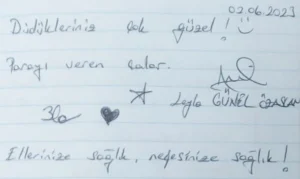 02.06.2023
Düdükleriniz çok güzel!
Parayı veren çalar.
Leyla GÜNEL
Ellerinize sağlık, nefesinize sağlık!